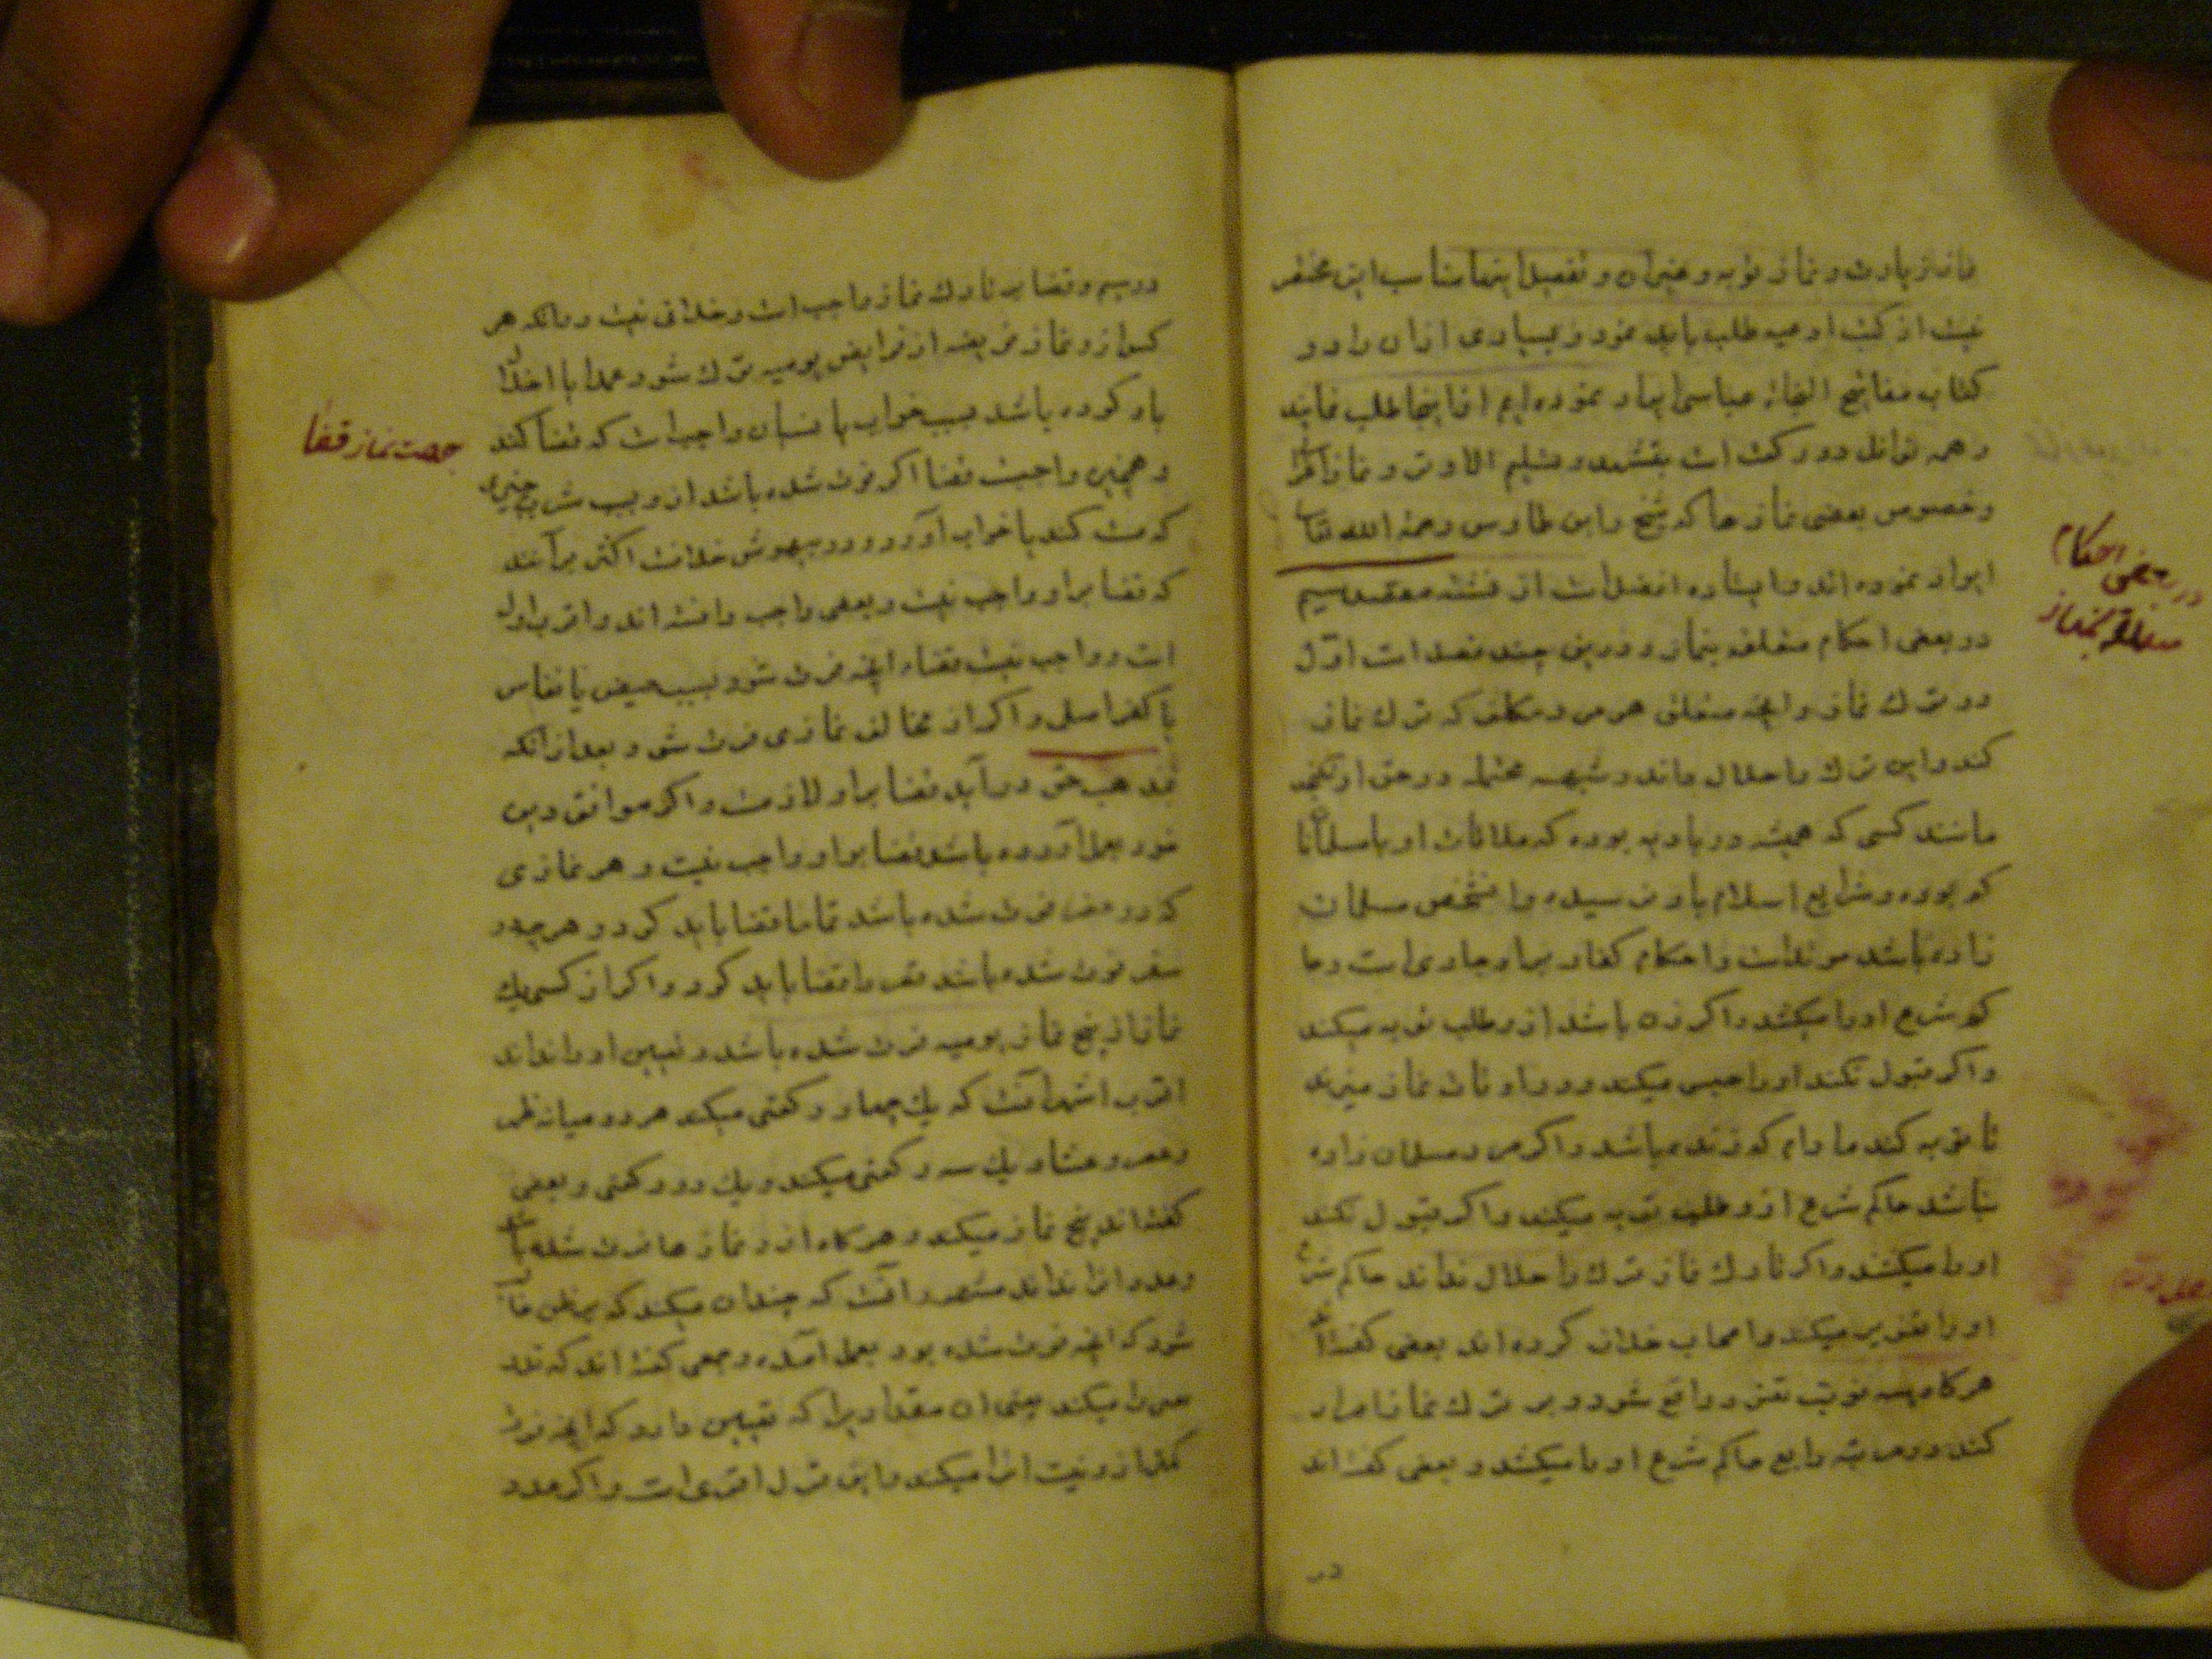 نماز زیارت و نماز توبه و غیر آن و تفصیل اینها مناسب این مختصر
نیست از کتب ادعیه طلب باید نمود و بسیاری از آن را در
کتاب مفاتیح النجاة عباسی ایراد نموده ایم از اینجا طلب نمایند
و همه نوافل دو رکعت است بتشهد و تسلیم الا وتر و نماز اعرابی
و خصوص بعضی نمازها که شیخ و ابن طاوس رحمه الله تعالی
ایراد نموده اند و ایستاده افضل است از نشسته مقصد سیم
در بعضی احکام متعلقه بنماز و درین چند مقصد است اول
در ترک نماز و آنچه متعلق هر مرد مکلف که ترک نماز
کند و این ترک را حلال داند و شبهه محتمله در حق او نگنجد
مانند کسی که همیشه در بادیه بوده که ملاقات او با مسلمانان
کم بوده و شرایع اسلام باو نرسیده و آنشخص مسلمان
زاده باشد مرتد است و احکام کفار بر او جاری است و حا
کم شرع او را میکشد و اگر زن باشد از و طلب توبه میکند
و اگر قبول نکند او را حبس میکند و در اوقات نماز میزند
تا توبه کند مادام که زنده باشد و اگر مرد مسلمان زاده
نباشد حاکم شرع از و طلب توبه میکند و اگر قبول نکند
او را میکشند و اگر تارک نماز ترک را حلال نداند حاکم شرع
او را تعزیر میکند و اصحاب خلاف کرده اند بعضی گفته اند
هرگاه سه نوبت تعزیر واقع شود و بر ترک نماز اصرار
کند در مرتبه رابع حاکم شرع او را میکشد و بعضی گفته اند
در
در بعضی احکام
متعلقه بنماز
در سیم و قضا بر تارک نماز واجب است و خلافی نیست در آنکه هر
کس از و نماز فریضه از فرایض یومیه ترک شود عمدا یا اخلال
باو کرده باشد بسبب خواب یا نسیان واجب است که قضا کند
و همچنین واجبست قضا اگر فوت شده باشد از و بسبب شرب چیزی
که مست کند یا خواب آورد و در بیهوش خلافست اکثر برآنند
که قضا بر او واجب نیست و بعضی واجب دانسته اند و اقرب اول
است و واجب نیست قضاء آنچه فوت شود بسبب حیض یا نفاس
یا کفر اصلی و اگر از مخالف نمازی فوت شود بعد از آنکه
بمذهب حق در آید قضا بر او لازمست و اگر موافق دین
خود بعمل آورده باشد قضا بر او واجب نیست و هر نمازی
که در حضر فوت شده باشد تماما قضا باید کرد و هر چه در
سفر فوت شده باشد قصرا قضا باید کرد و اگر از کسی یک
نماز از پنج نماز یومیه فوت شده باشد و تعیین او را نداند
اقرب اشهر آنست که یک چهار رکعتی میکند مردد میانه ظهر
و عصر و عشا و یک سه رکعتی میکند و یک دو رکعتی و بعضی
گفته اند پنج نماز میکند و هرگاه از و نمازها فوت شده باشد
و عدد آنرا نداند مشهور آنست که چندان میکند که بر ظن غالب
شود که آنچه فوت شده بود بعمل آمده و جمعی گفته اند که قدر
معین را میکند یعنی آن مقدار را که تعیین دارد که آنچه فوت
کمتر از و نیست آنرا میکند و این قول اقوی است و اگر عدد
جهت نماز قضا